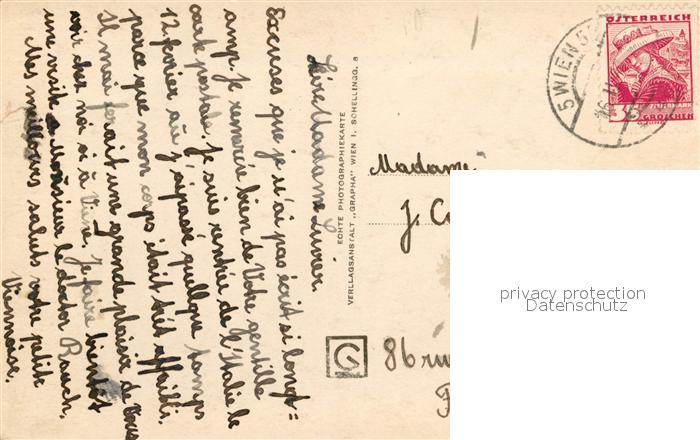 Chère Madame Livier.
Excuses que je n'ai pas écrit si longt=
amp. Je remercie bien de Votre gentille
cart postal. Je suis rentrée de l'Italie le
12 fevrier, où j'ai passé quelque tamps
parce que mon corps était très affaibli.
Il mai ferait une grande plaisir de Vous
voir chez moi si à Vienne. Je faire bientôt
une visite a Monsieur le doctor Rauch.
Mes meilleures saluts votre petite
Viennoise.
ECHTE PHOTOGRAPHIEKARTE
VERLLAGSANSTALT „GRAPHA" WIEN I. SCHELLINGG. 8
G
ÖSTERREICH
GROSCHEN
5 WIEN 5
Madame
J. Co
86 rue
privacy protection
Datenschutz